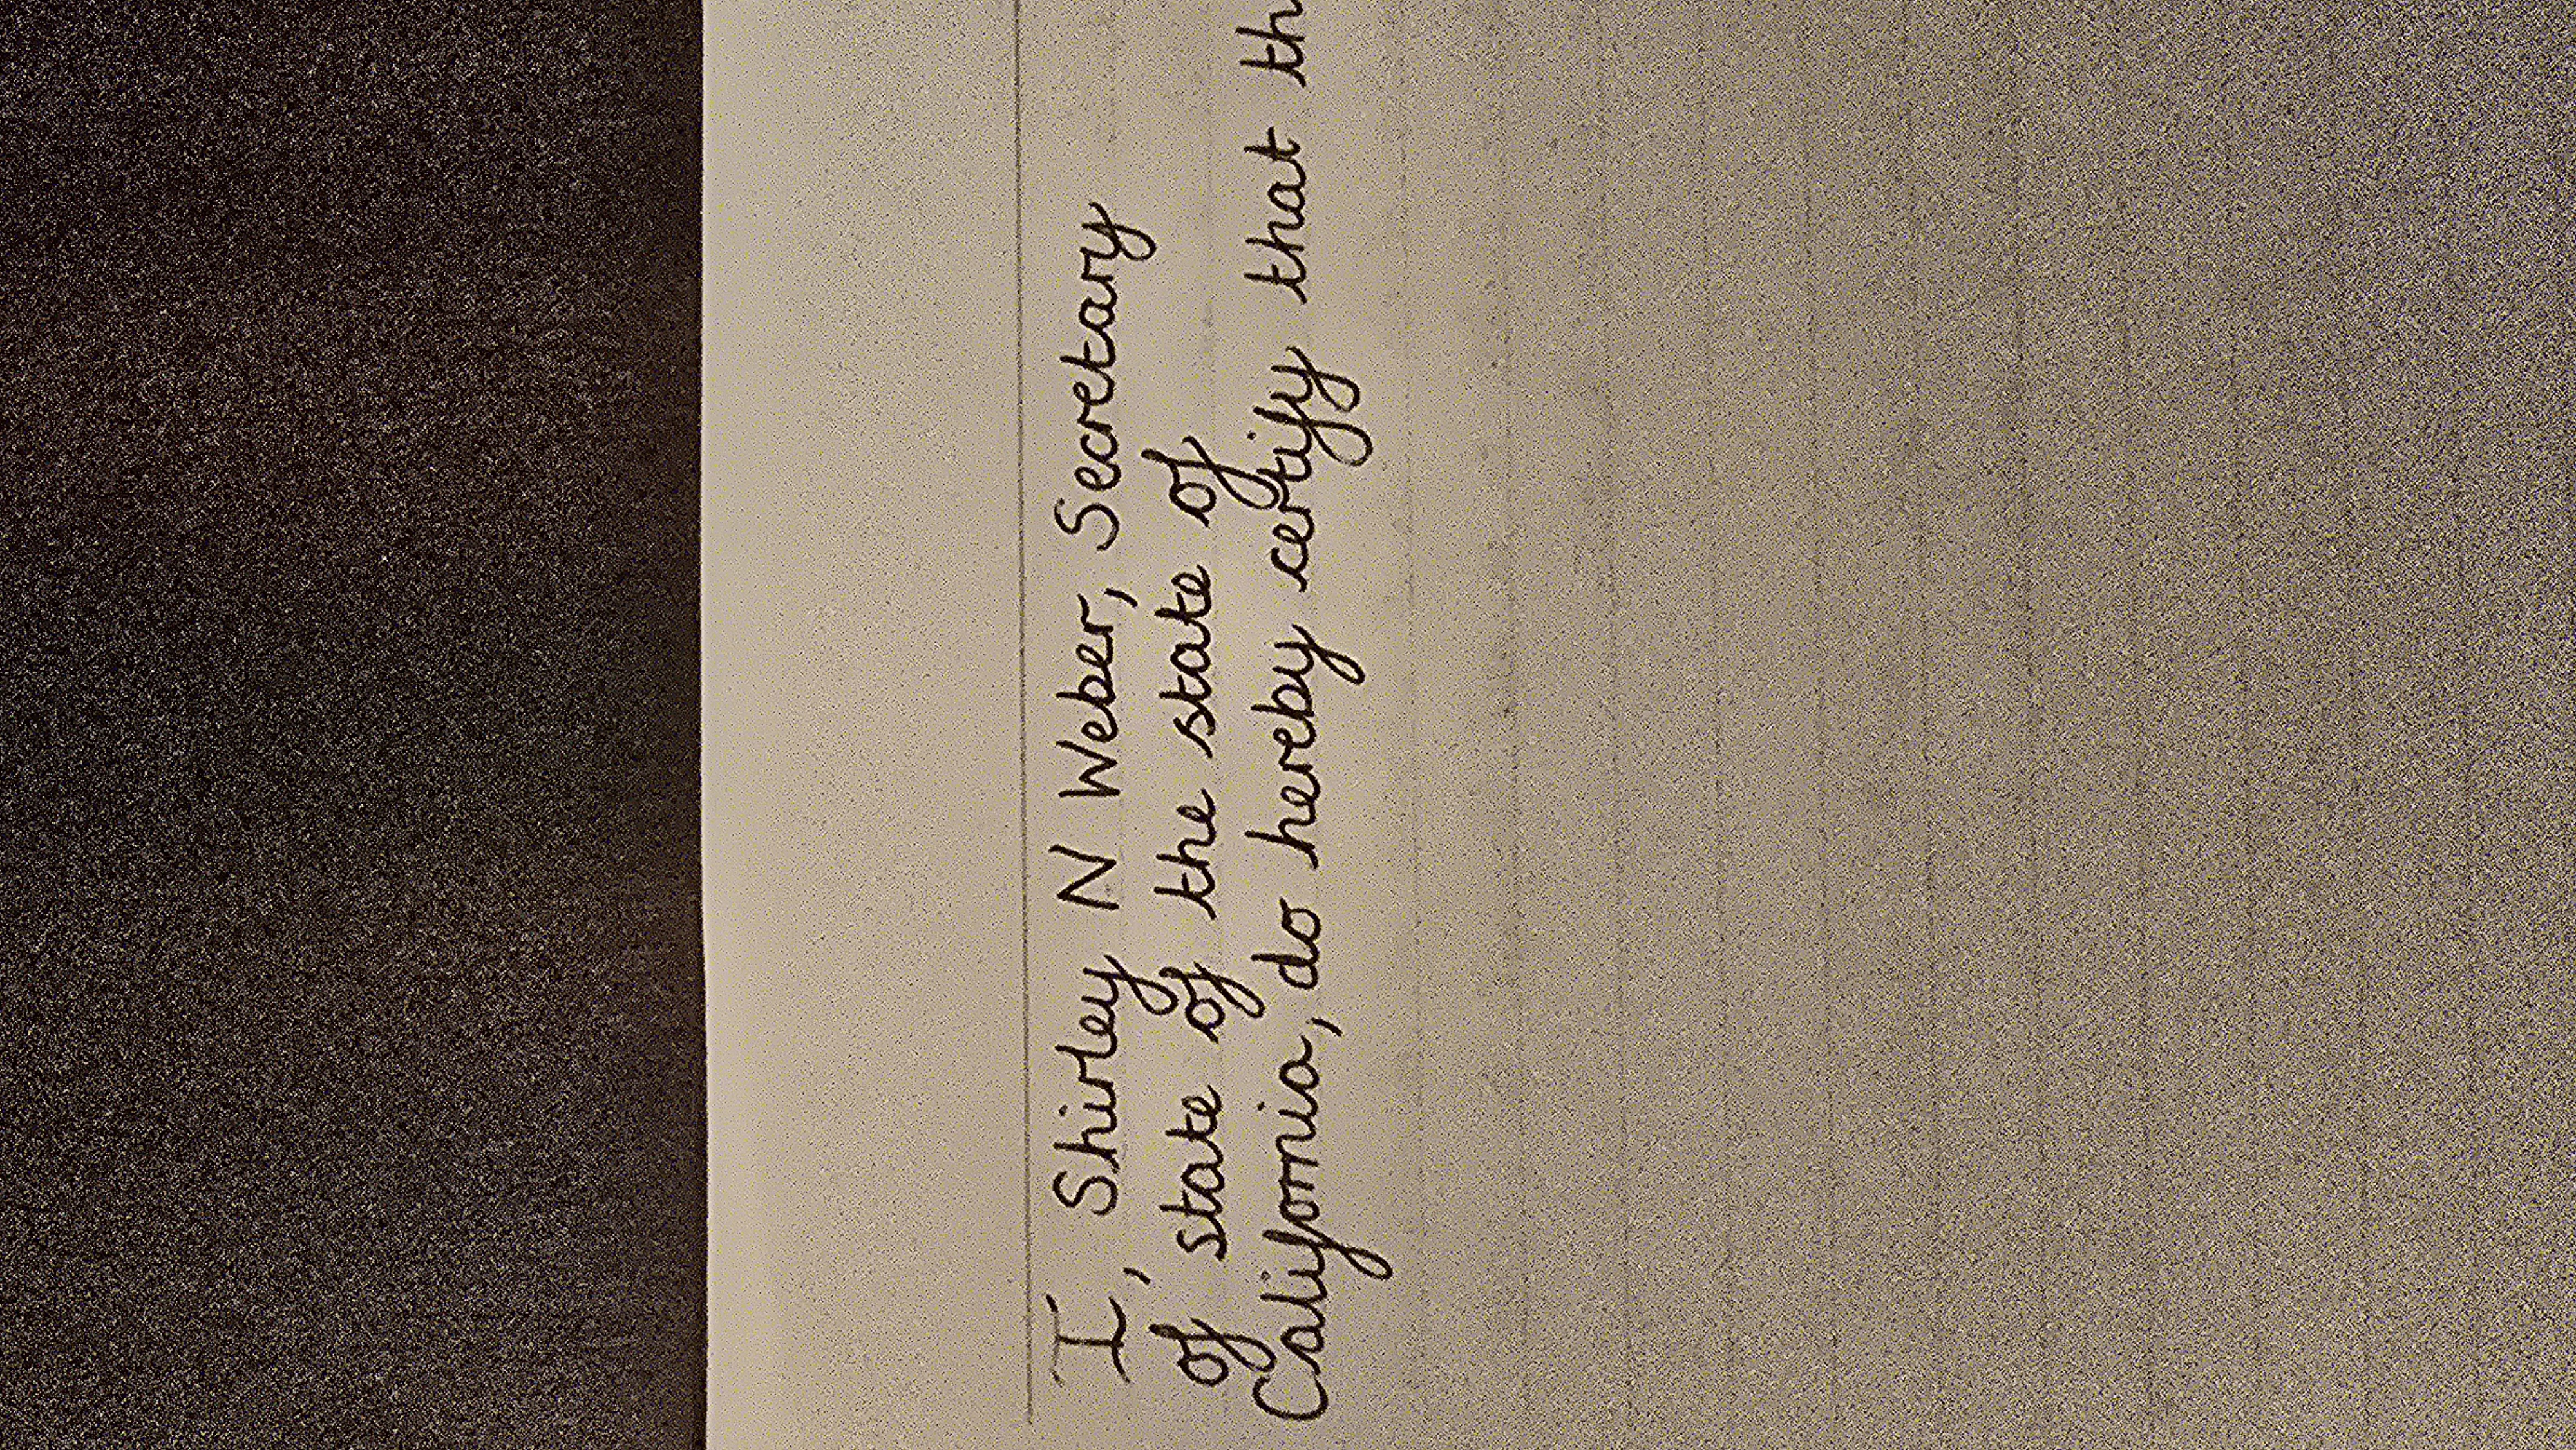 I, Shirley N Weber, Secretary
of state of the state of
California, do hereby certify that th